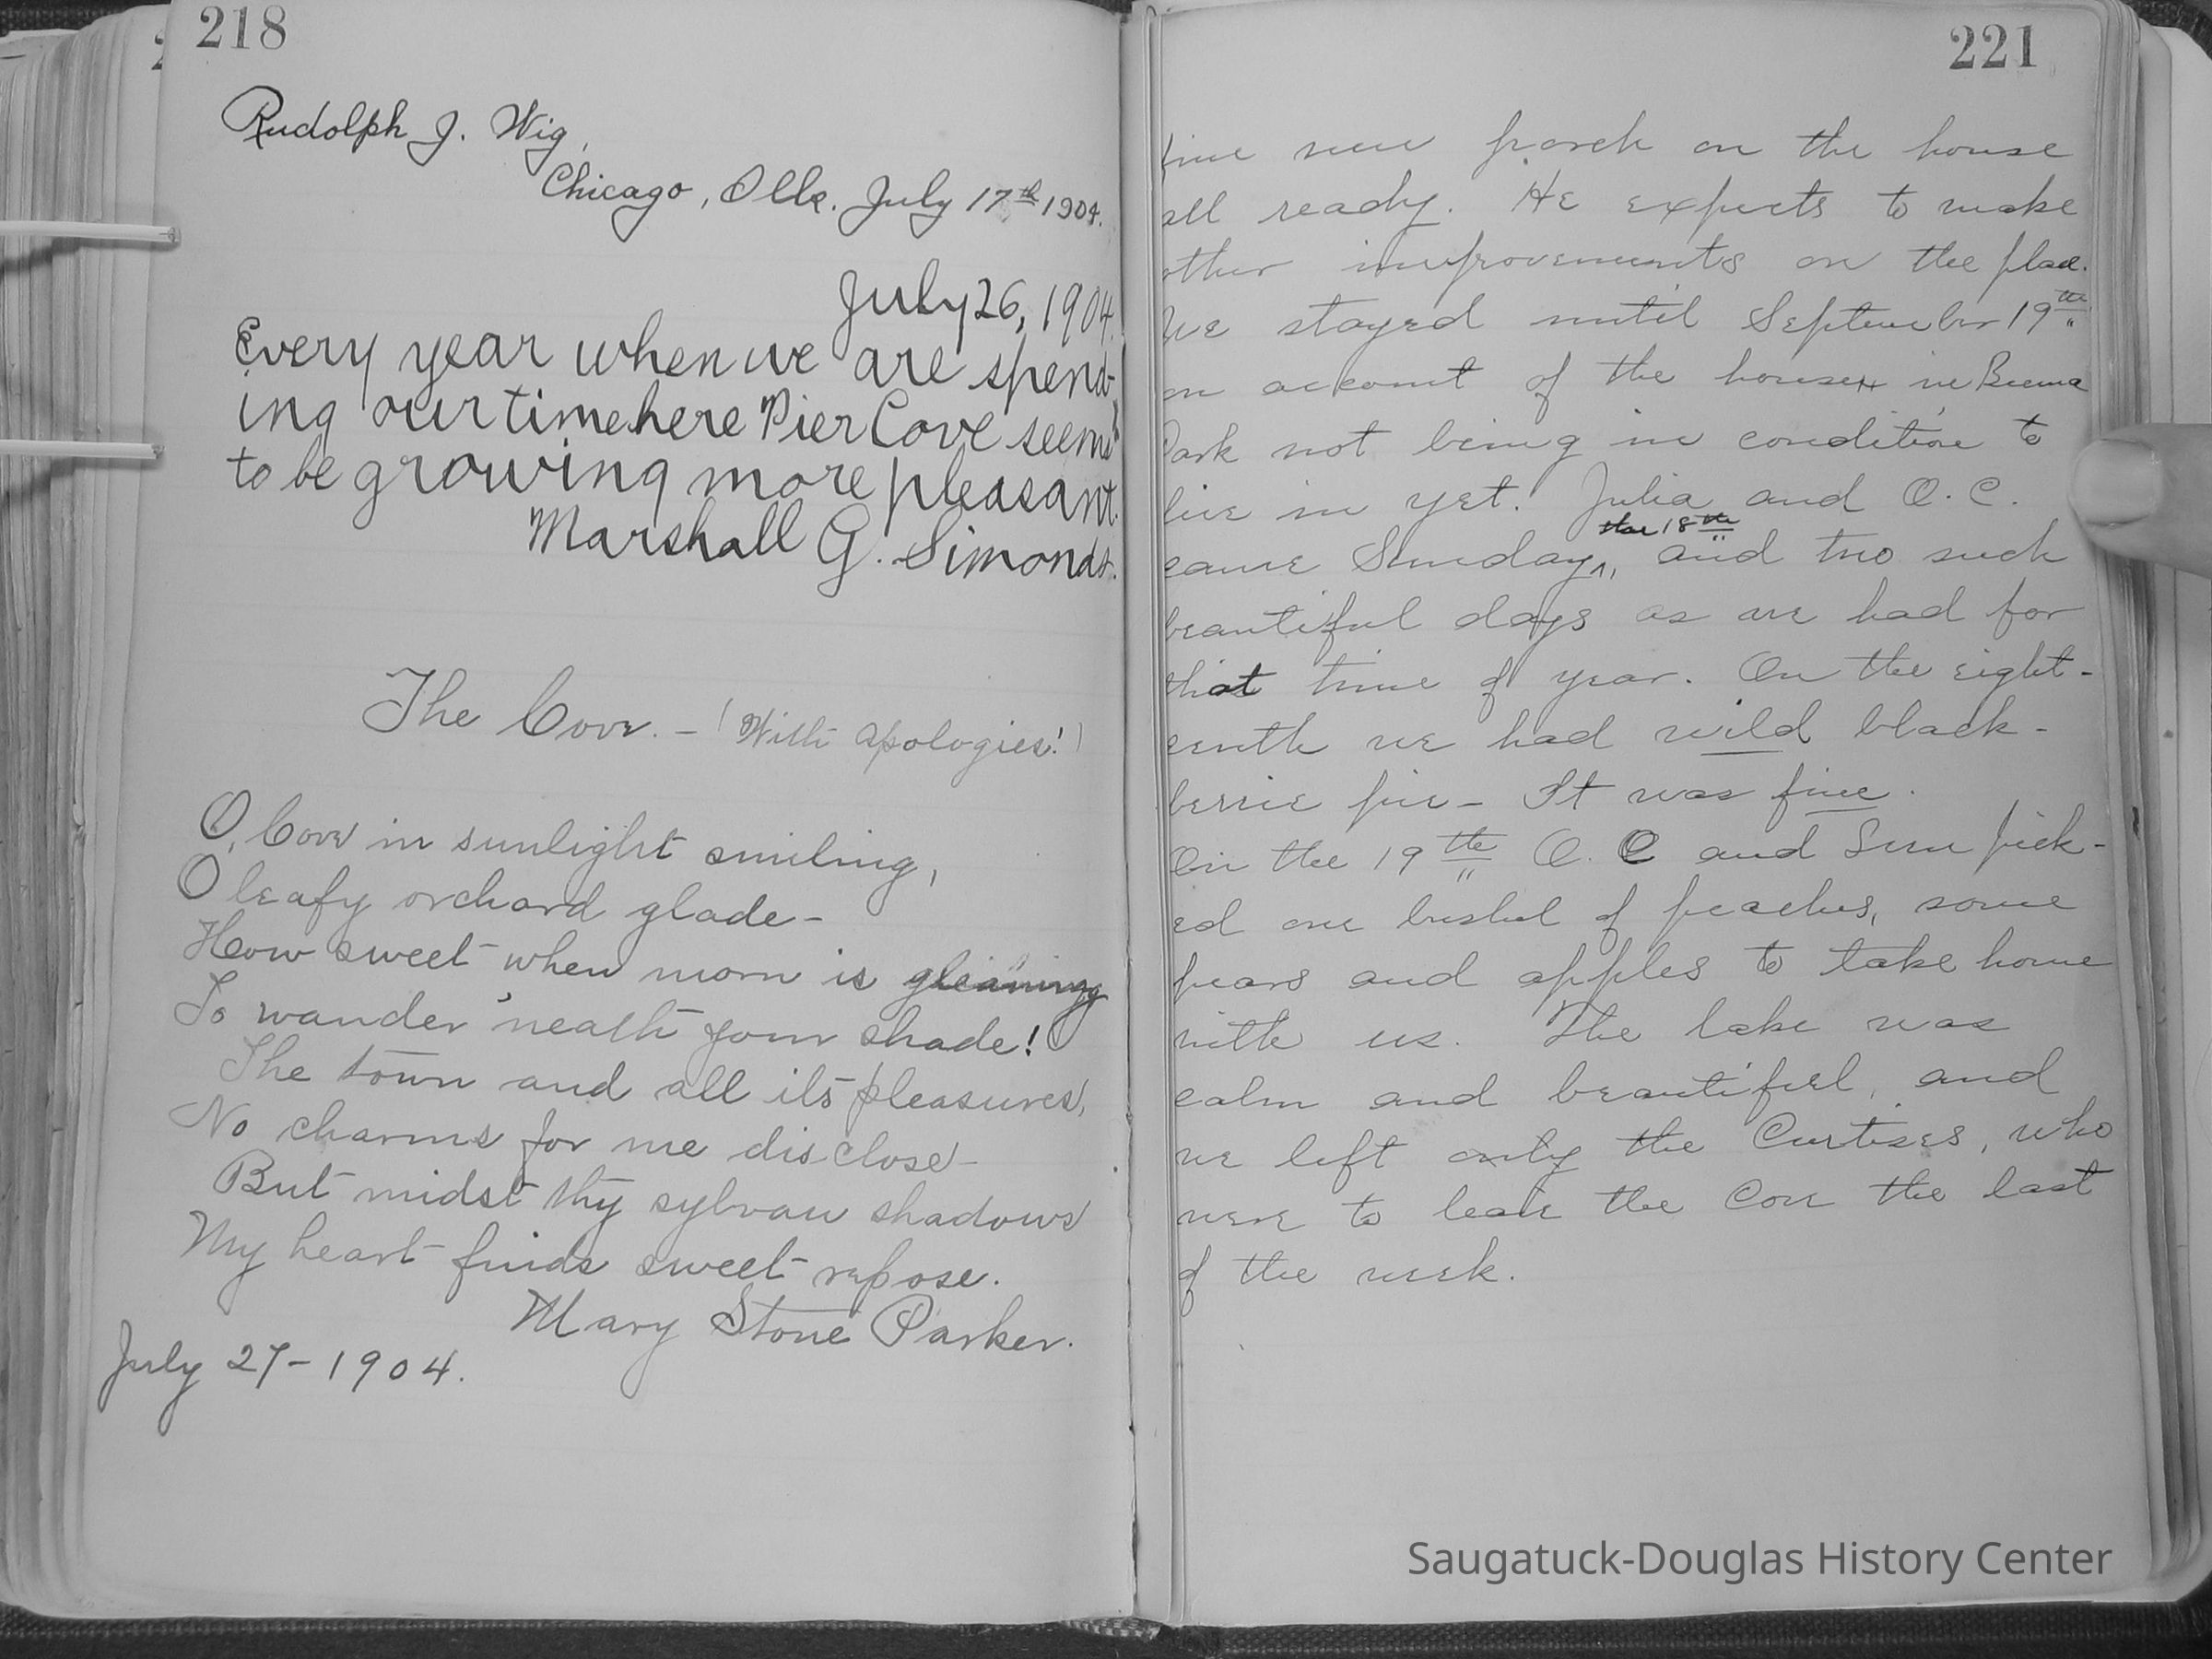 218
Rudolph J. Wig,
Chicago, Ills. July 17th 1904.
July 26, 1904.
Every year when we are spend-
ing our time here Pier Cove seems
to be growing more pleasant.
Marshall G. Simonds.
The Cove. – (With apologies!)
O, Cove in sunlight smiling,
O leafy orchard glade –
How sweet when morn is gleaming
To wander 'neath your shade!
The town and all its pleasures,
No charms for me disclose –
But midst thy sylvan shadows
My heart finds sweet repose.
Mary Stone Parker.
July 27 – 1904.
221
fine new porch on the house
all ready. He expects to make
other improvements on the place.
We stayed until September 19th
on account of the house in Buena
Park not being in condition to
live in yet. Julia and O. C.
the 18th
came Sunday, and two such
beautiful days as we had for
that time of year. On the eight-
eenth we had wild black-
berrie pie – It was fine.
On the 19th O. C and Sum pick-
ed one bushel of peaches, some
pears and apples to take home
with us. The lake was
calm and beautiful, and
we left only the Curtises, who
were to leave the Cove the last
of the week.
Saugatuck-Douglas History Center